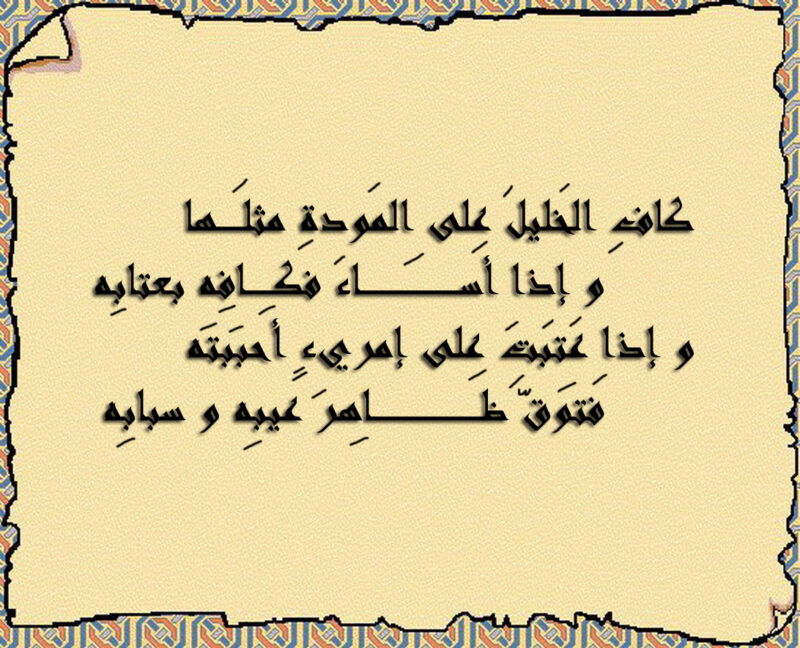 كافِ الخَليلَ عَلى المَودةِ مثلَـها
و إذا أَســـاءَ فَكـافِه بعتابِه
و إذا عَتَبتَ عَلى إمريءٍ أَحبَبتَه
فَتَوَقّ ظَـــاهِرَ عَيبِه و سبابِه